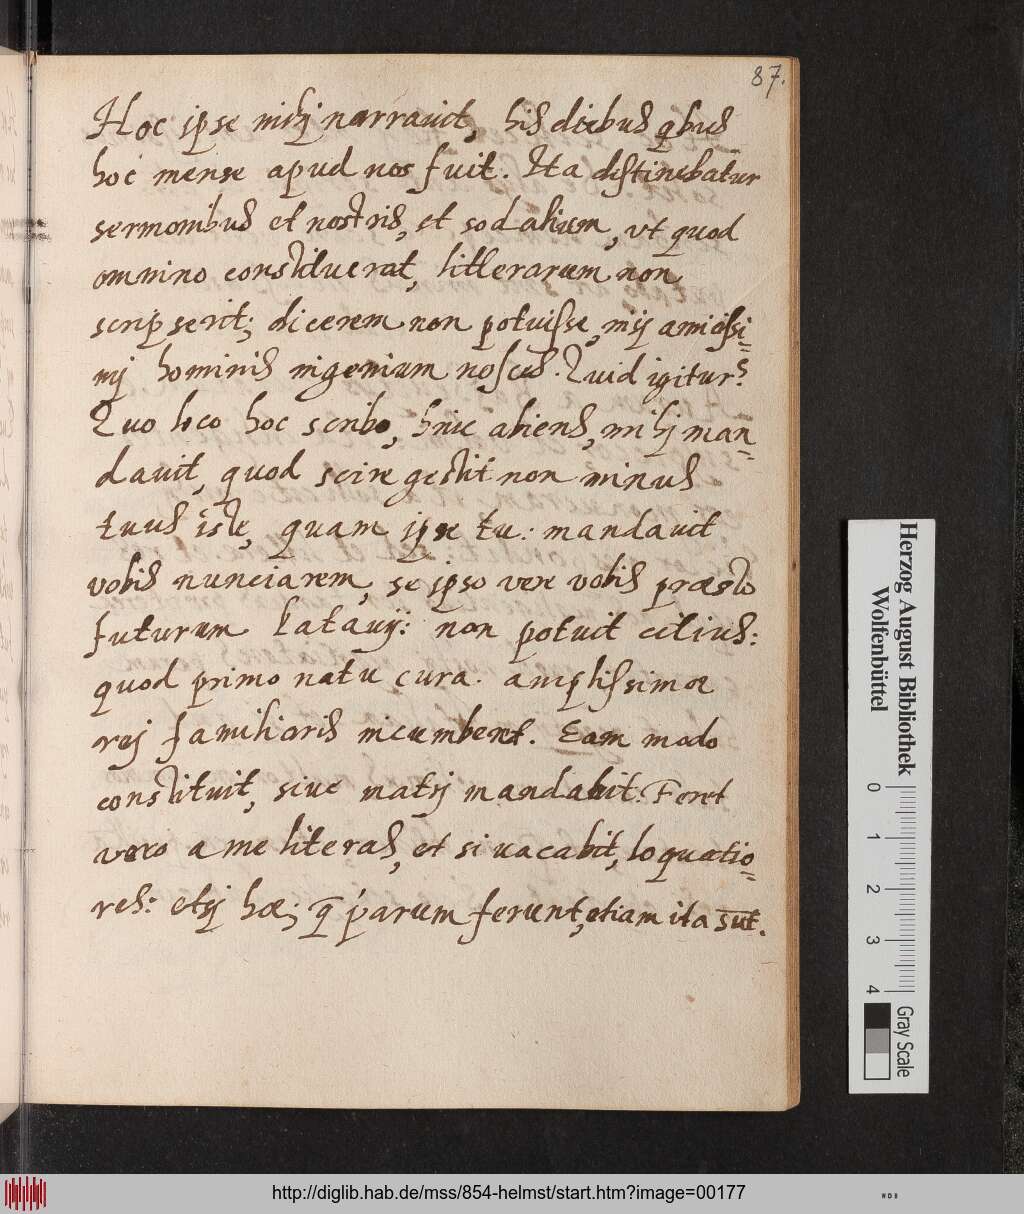 87.
Hoc ipse mihj narrauit, his diebus qbus
hoc mense apud nos fuit. Ita distinebatur
sermonibus et nostris, et sodalium, vt quod
omnino constituerat, litterarum non
scripserit; dicerem non potuisse, nisj amicissi-
mj hominis ingenium nosces. Quid igitur?
Quo loco hoc scribo, hinc abiens, mihj man-
dauit, quod scire gestit non minus
tuus iste, quam ipse tu: mandauit
vobis nunciarem, se ipso vere vobis præsto
futurum Patauij: non potuit citius:
quod primo natu cura. amplissimæ
rej familiaris incumberet. Eam modo
constituit, siue matrj mandabit. Feret
vero a me literas, et si vacabit, loquatio-
res: etsj hæ; q parum ferunt, etiam ita sut.
Herzog August Bibliothek
Wolfenbüttel
0 1 2 3 4
Gray Scale
http://diglib.hab.de/mss/854-helmst/start.htm?image=00177